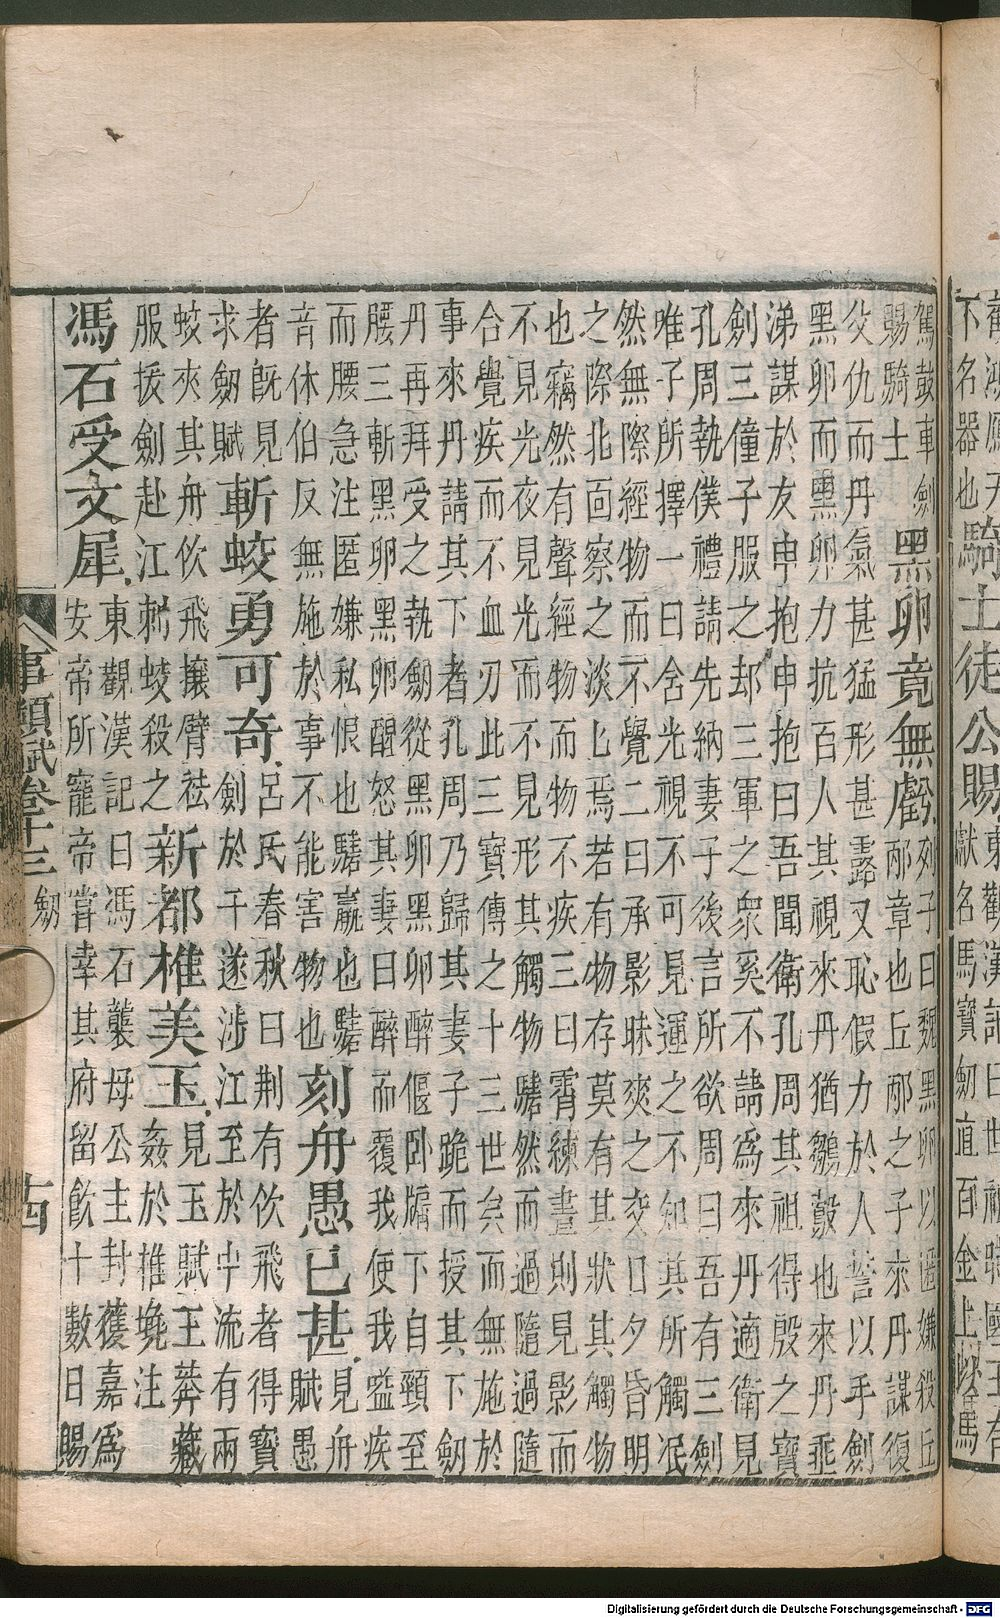 駕鼓車劍
賜騎士
黑卵竟無虧
列子曰魏黑卵以匿嫌殺丘
邴章也丘邴之子來丹謀復
父仇而丹氣甚猛形甚露又恥假力於人誓以手劍
黑卵而黑卵力抗百人其視來丹猶鶵鷇也來丹乖
涕謀於友申抱申抱曰吾聞衛孔周其祖得殷之寶
劍三僮子服之却三軍之衆奚不請爲來丹適衛見
孔周執僕禮請先納妻子後言所欲周曰吾有三劍
唯子所擇一曰舍光視不可見運之不知其所觸泯
然無際經物而不覺二曰承影昧爽之交日夕昏明
之際北面察之淡匕焉若有物存莫有其狀其觸物
也竊然有聲經物而物不疾三曰霄練晝則見影而
不見光夜見光而不見形其觸物騞然而過隨過隨
合覺疾而不血刃此三寶傳之十三世矣而無施於
事來丹請其下者孔周乃歸其妻子跪而授其下劒
丹再拜受之執劒從黑卵黑卵醉偃臥牖下自頸至
腰三斬黑卵黑卵醒怒其妻曰醉而覆我使我嗌疾
而腰急注匿嫌私恨也騞羸也騞
音休伯反無施於事不能害物也
刻舟愚已甚
見舟
賦愚
者旣見
求劒賦
斬蛟勇可奇
呂氏春秋曰荆有佽飛者得寶
劍於干遂涉江至於中流有兩
蛟夾其舟佽飛攘臂袪
服拔劍赴江刺蛟殺之
新都椎美玉
見玉賦王莽藏
姦於椎㙜注
馮石受文犀
東觀漢記曰馮石襲母公主封獲嘉爲
安帝所寵帝嘗幸其府留飮十數日賜
事類賦卷十三
劒
十四
騎士徒公賜
東觀漢記曰世祖時國王有
獻名馬寶劒直百金上
不名器也
Digitalisierung gefördert durch die Deutsche Forschungsgemeinschaft - DFG